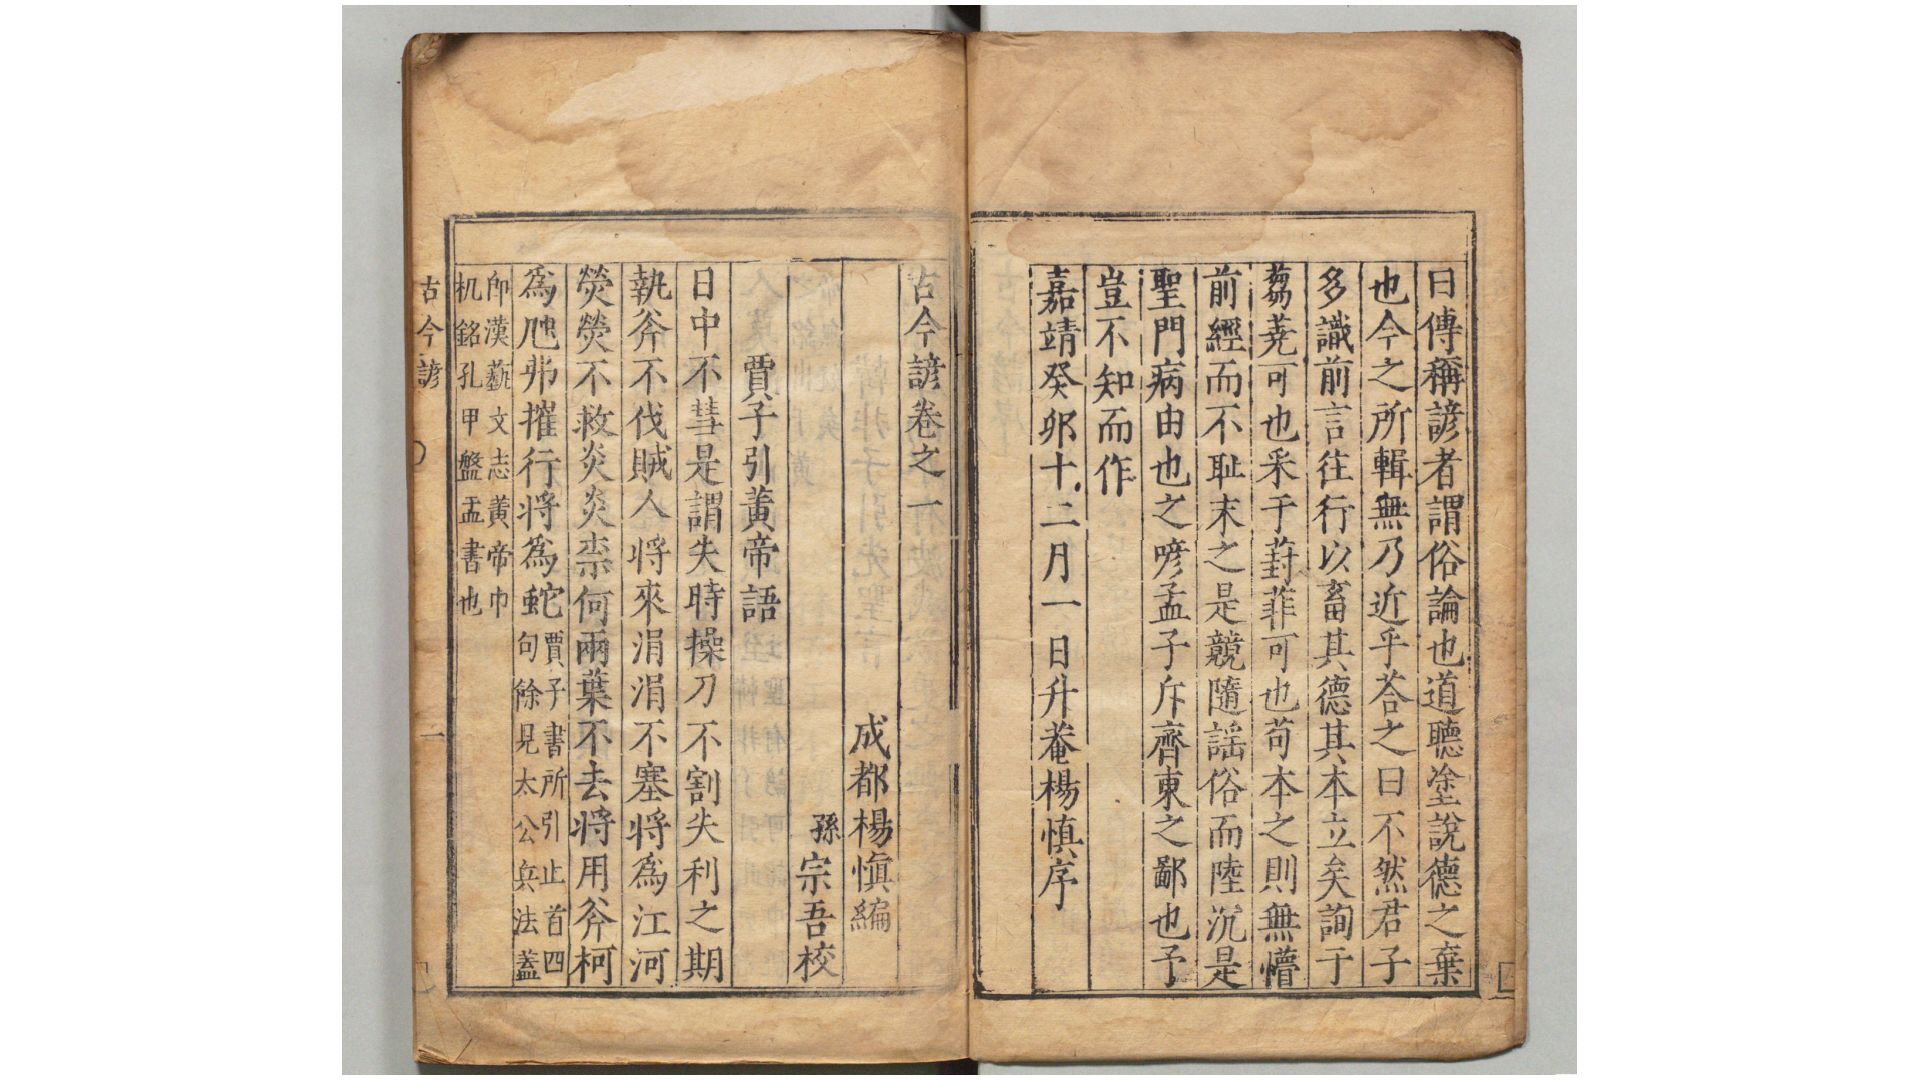 曰傳稱諺者謂俗論也道聽塗說德之棄
也今之所輯無乃近乎荅之曰不然君子
多識前言往行以畜其德其本立矣詢于
芻蕘可也釆于葑菲可也苟本之則無懵
前經而不耻末之是競隨謡俗而陸沉是
聖門病由也之喭孟子斥齊東之鄙也予
豈不知而作
嘉靖癸卯十二月一日升菴楊慎序
古今諺卷之一
成都楊慎編
孫宗吾校
賈子引黄帝語
日中不彗是謂失時操刀不割失利之期
執斧不伐賊人將來涓涓不塞將爲江河
熒熒不救炎炎柰何兩葉不去將用斧柯
爲虺弗摧行將爲蛇
賈子書所引止首四
句餘見太公兵法蓋
即漢藝文志黄帝巾
机銘孔甲盤盂書也
古今諺
一